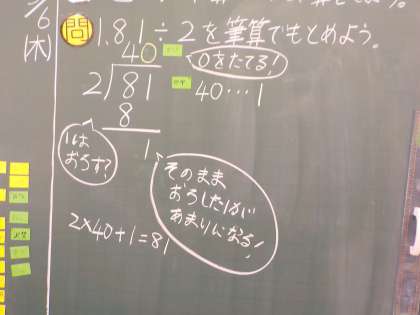 6
(木)
問 1. 81÷2を筆算でもとめよう。
40
0をたてる!
2)81
40…1
8
1は
おろす?
1
そのまま
おろした1が
あまりになる!
2×40+1=81